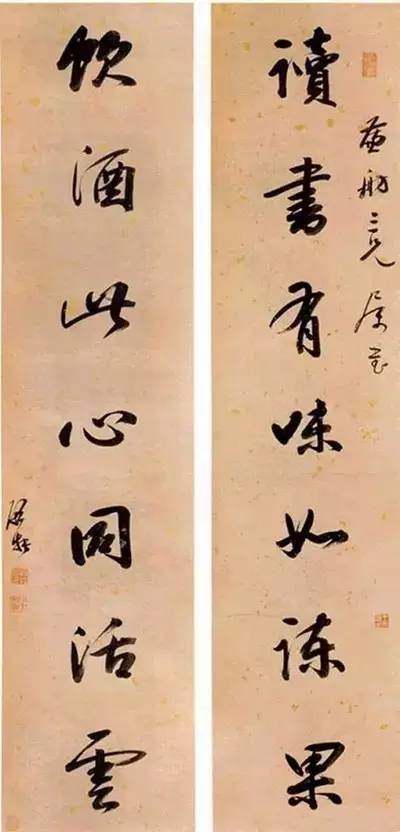 讀書有味如諫果
舫三兄属
飲酒此心同活雲